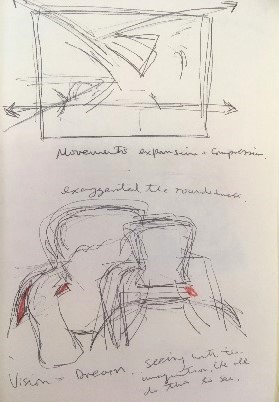 Movements expansion + compression.
exaggerated the roundness.
Vision = Dream. seeing with the
imagination. We all
do this to see.